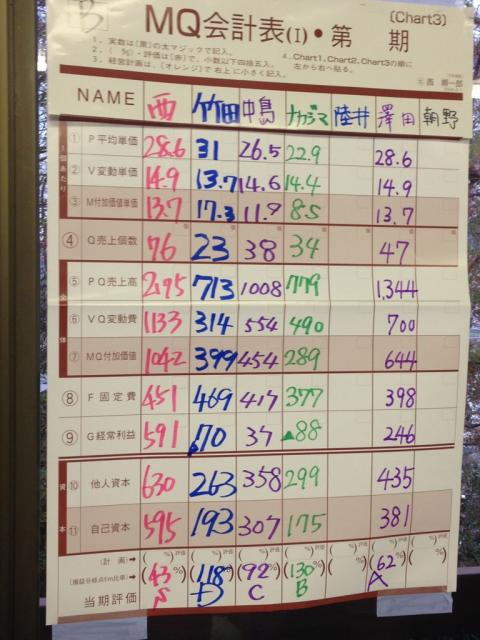 B
MQ会計表(I)・第 期
(Chart3)
1．実数は〔黒〕の太マジックで記入。
3．経営計画は、〔オレンジ〕で右上に小さく記入。
4．Chart1、Chart2、Chart3の順に
左から右へ貼る。
NAME 西 竹田 中島 ナカジマ 陸井 澤田 朝野
1個あたり
① P平均単価 28.6 31 26.5 22.9 28.6
② V変動単価 14.9 13.7 14.6 14.4 14.9
③ M付加価値単価 13.7 17.3 11.9 8.5 13.7
④ Q売上個数 76 23 38 34 47
全体
⑤ PQ売上高 2175 713 1008 779 1,344
⑥ VQ変動費 1133 314 554 490 700
⑦ MQ付加価値 1042 399 454 289 644
⑧ F固定費 451 469 417 377 398
⑨ G経常利益 591 ▲70 37 ▲88 246
資本
⑩ 他人資本 630 263 358 299 435
⑪ 自己資本 595 193 307 175 381
(計画)→ ( %) ( %) ( %) ( %) ( %) ( %) ( %)
(損益分岐点f/m比率)→ (43%) (118%) (92%) (130%) ( %) (62%) ( %)
当期評価 S D C B A